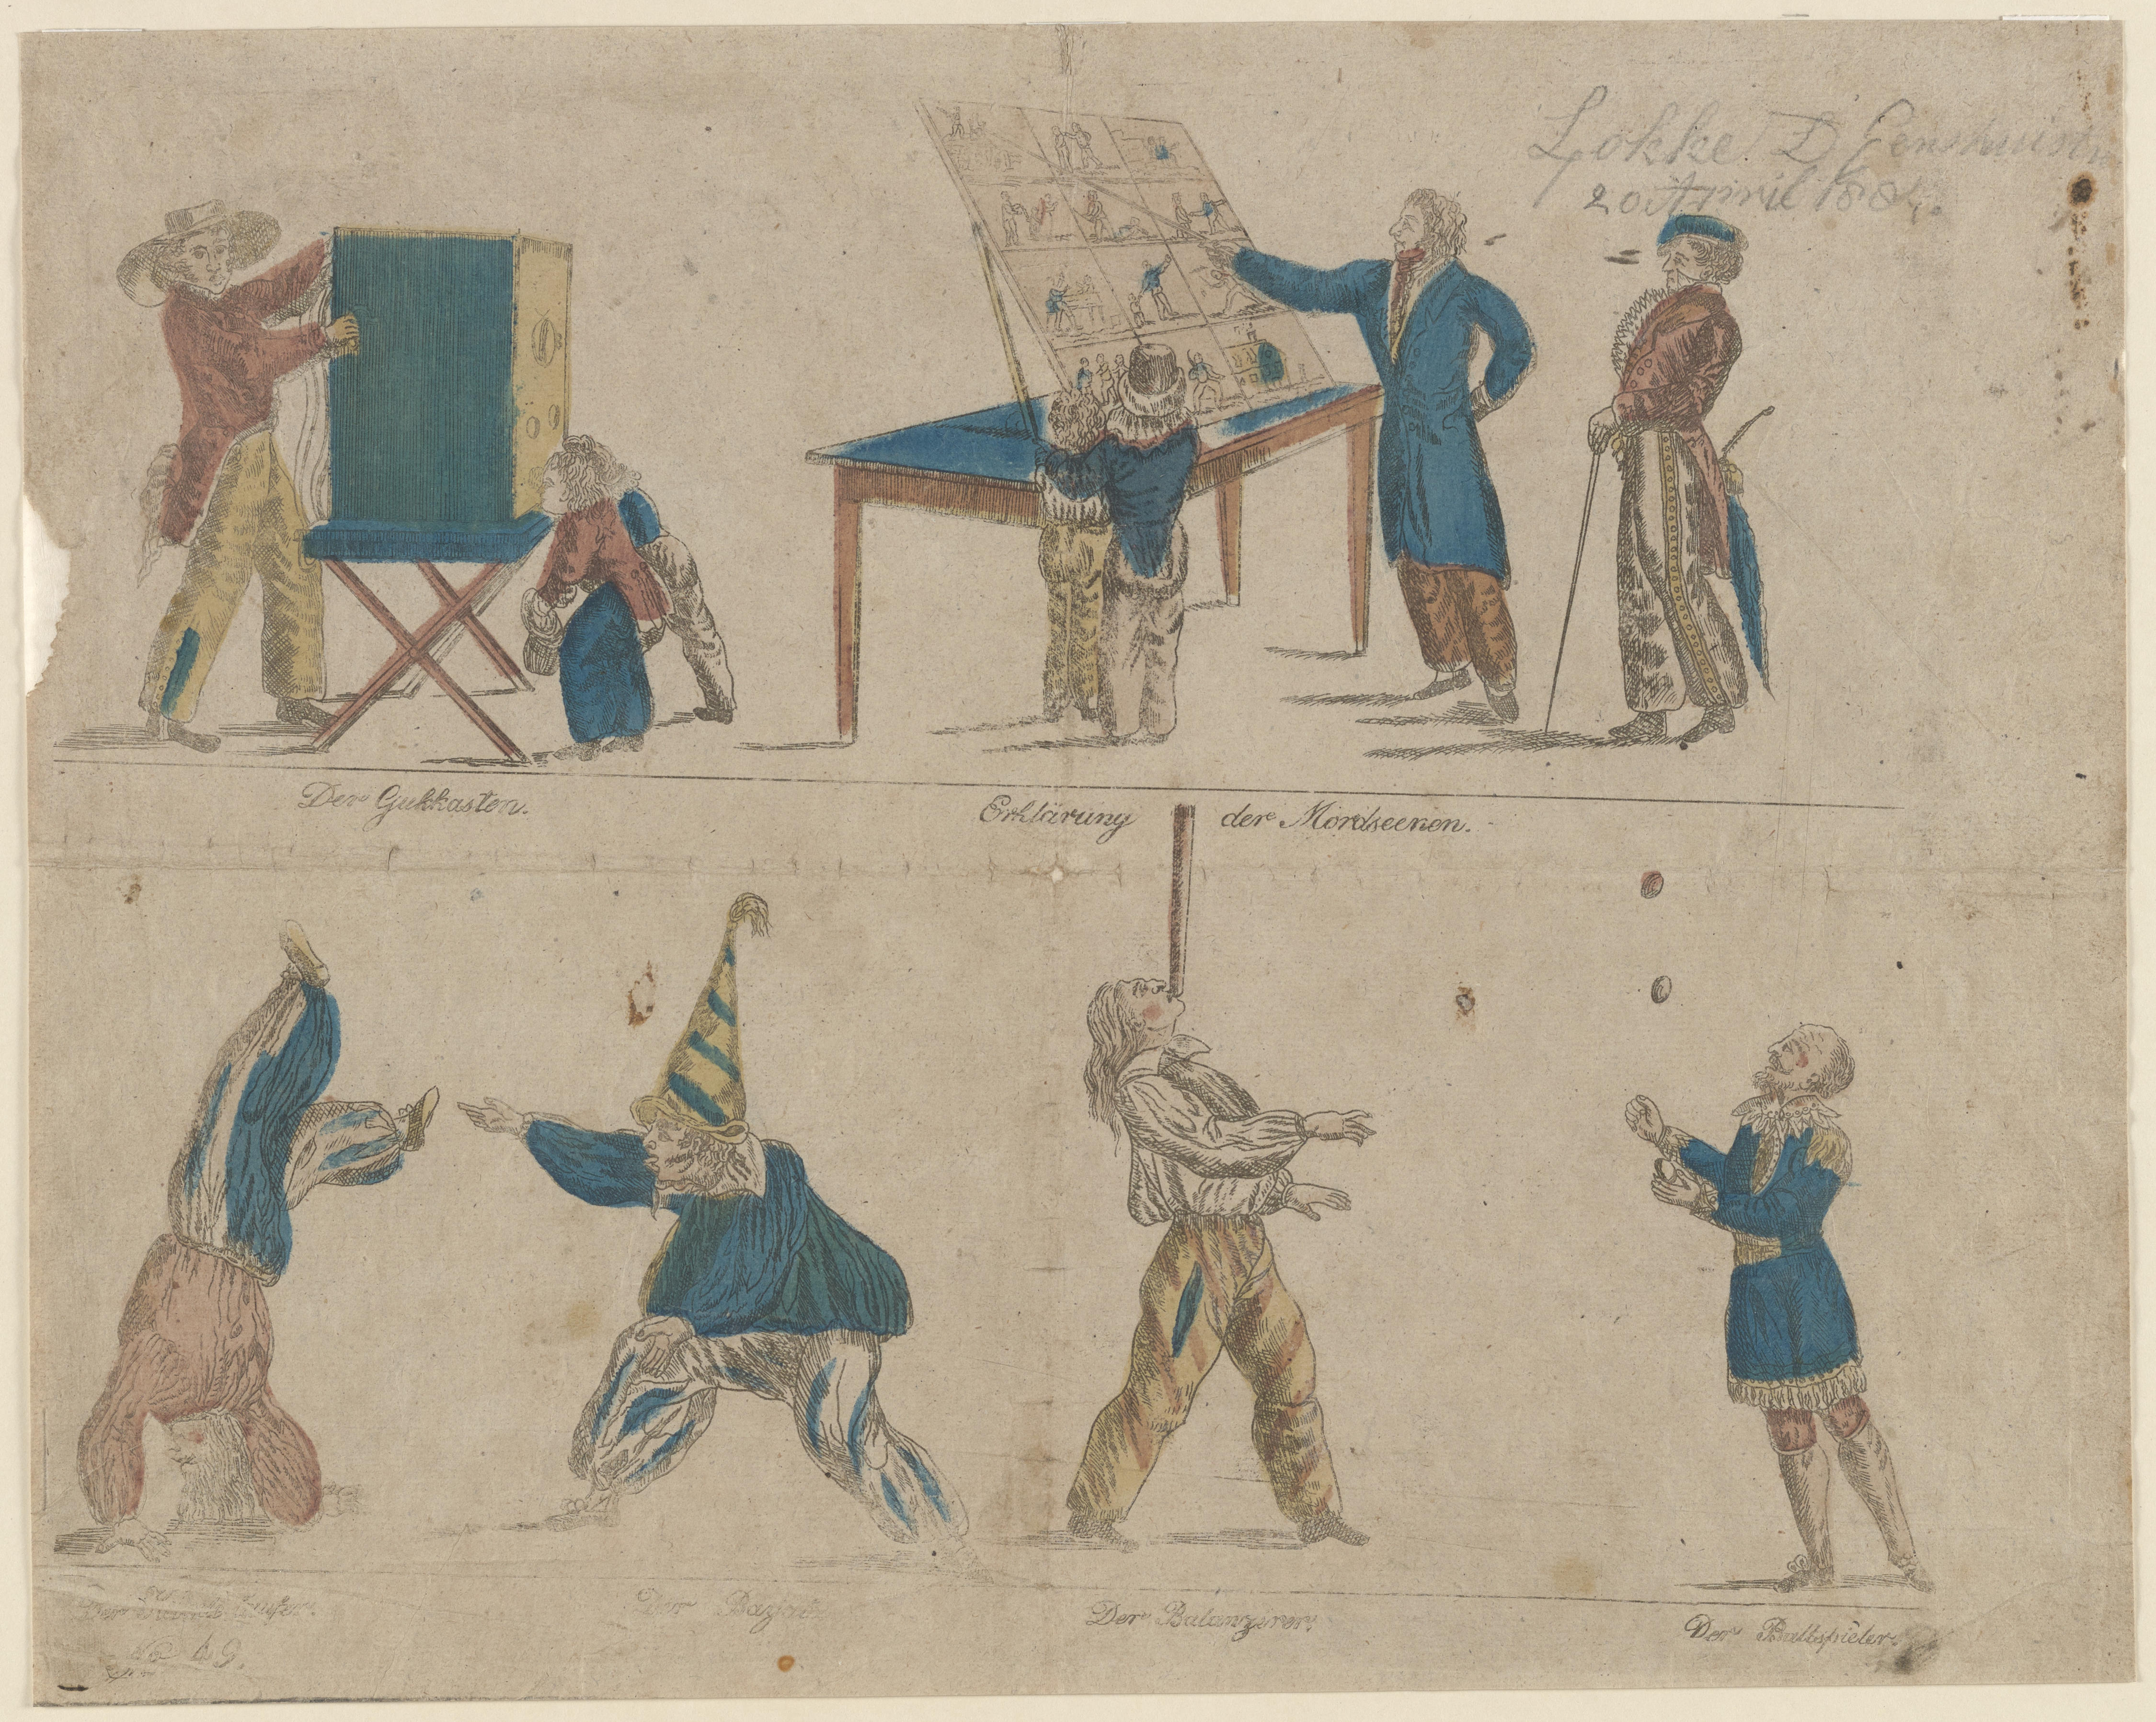 Lokke D
20 April 188
Der Gukkasten.
Erklärung der Mordscenen.
Der
Der Bajaz
Der Balanzirer.
Der Ballspieler.
No 49.